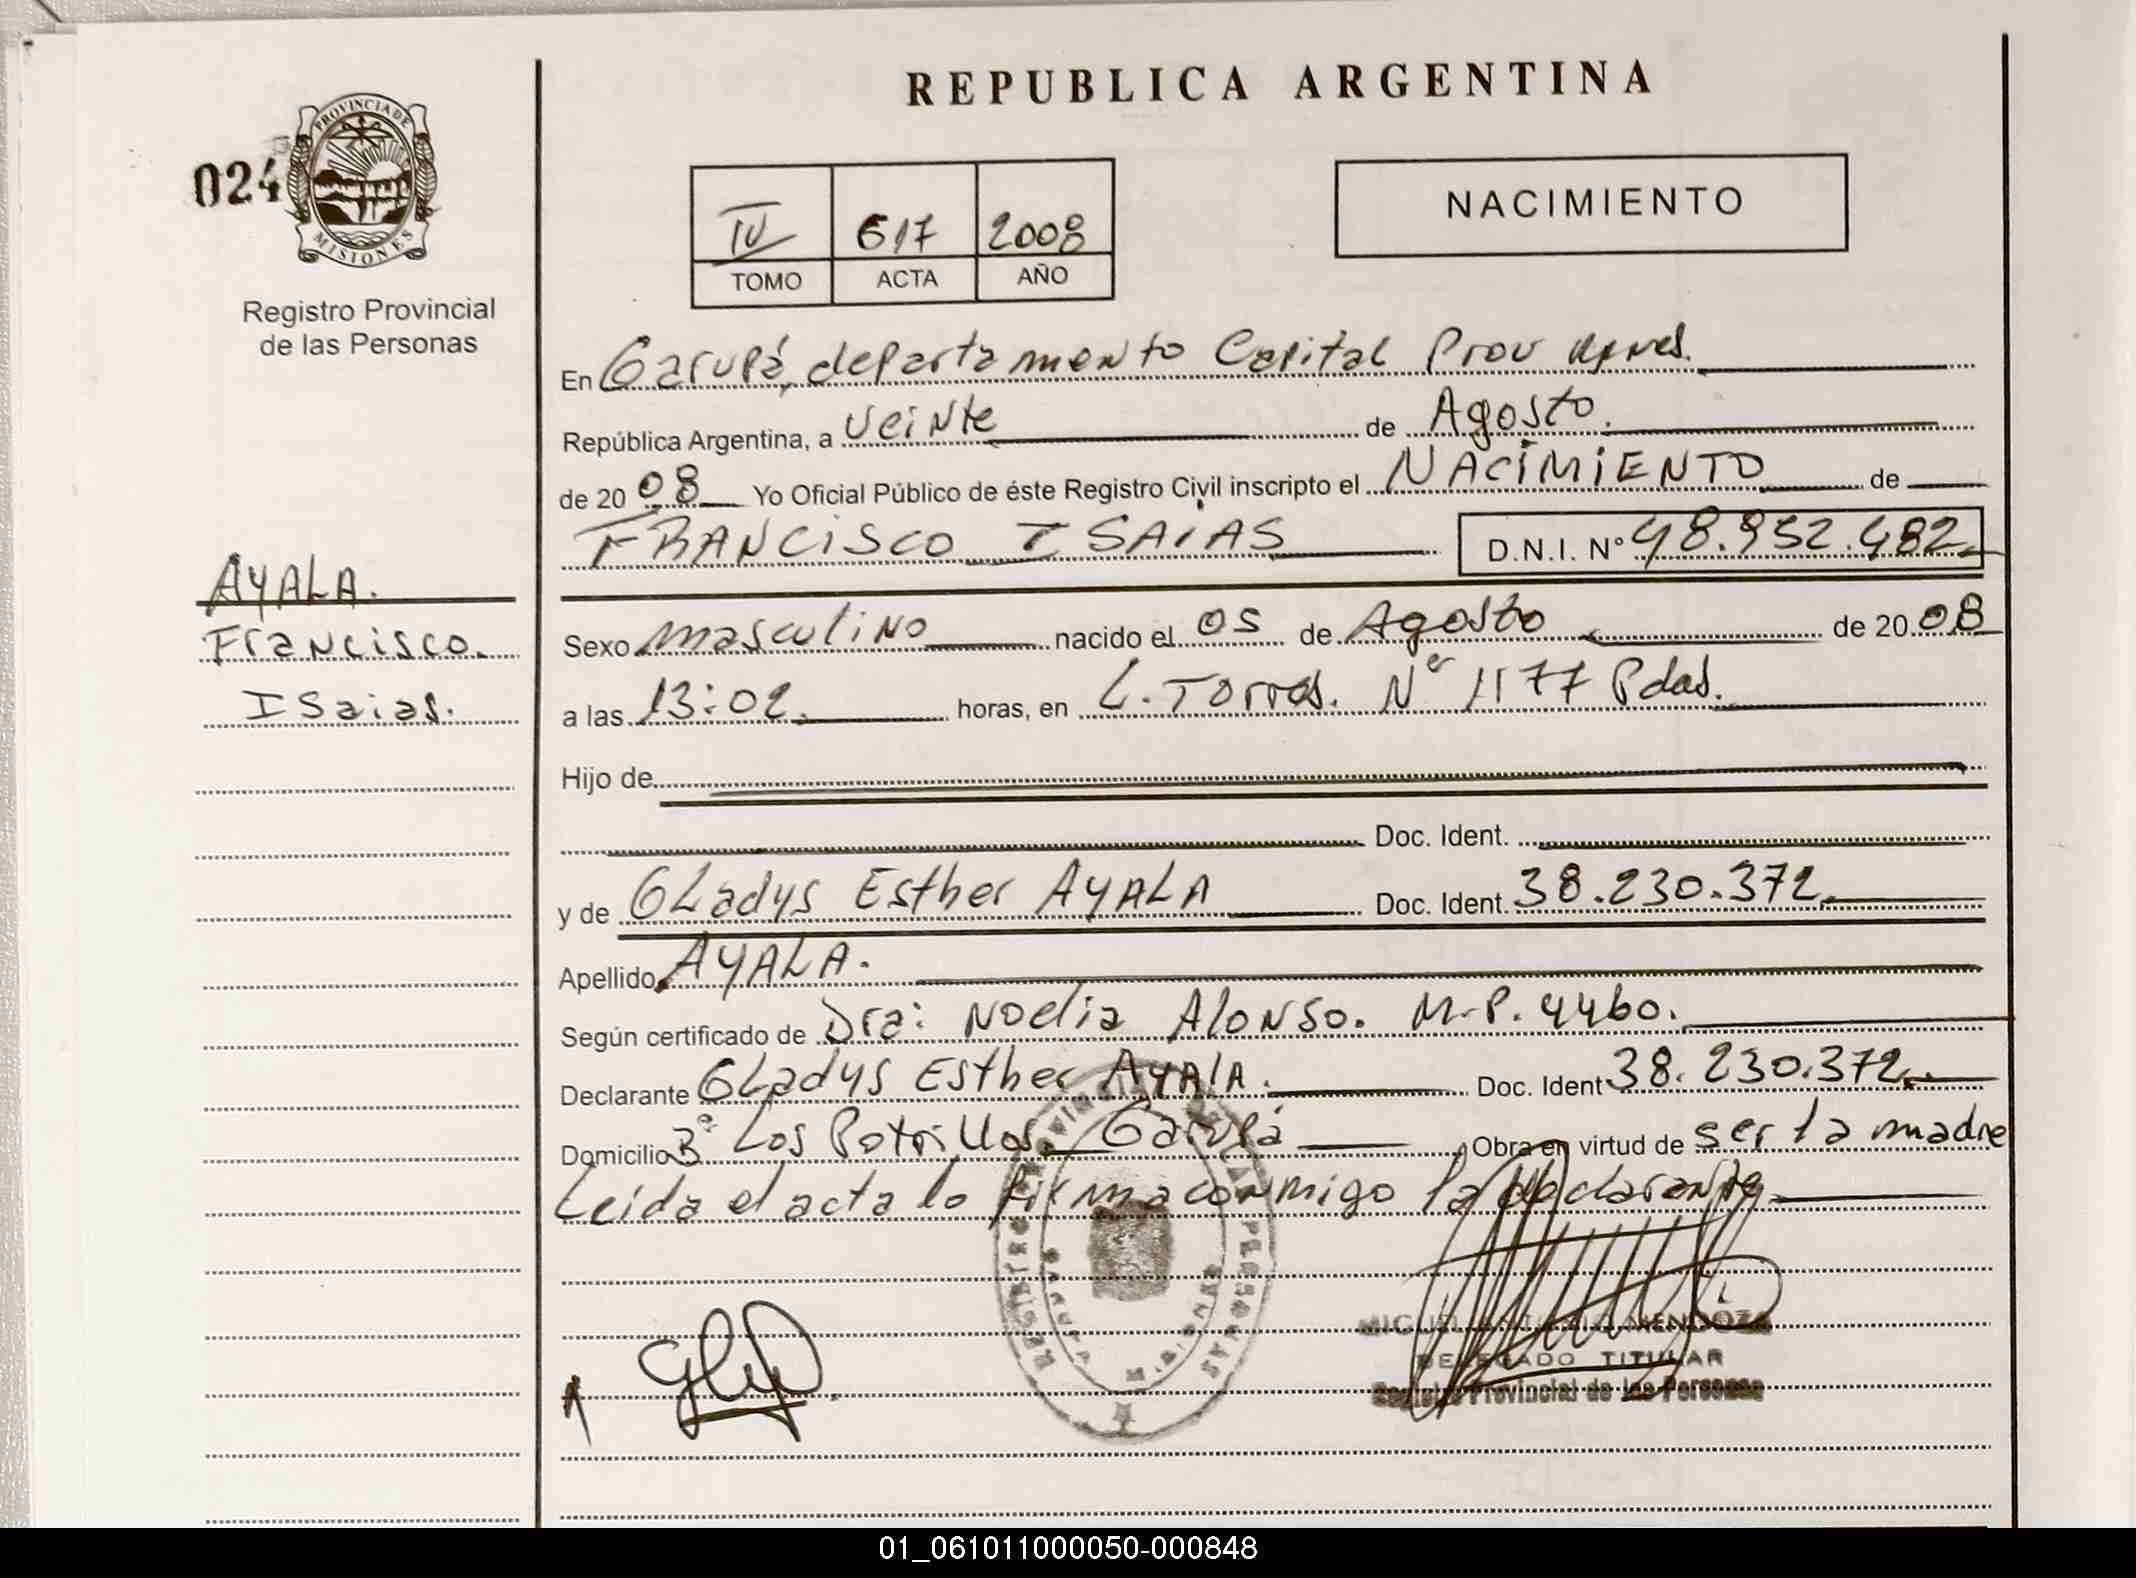 REPUBLICA ARGENTINA
PROVINCIA DE MISIONES
024
Registro Provincial
de las Personas
IV 617 2008
TOMO ACTA AÑO
NACIMIENTO
En Garupá, departamento Capital Prov
República Argentina, a veinte de Agosto.
de 20 08 Yo Oficial Público de éste Registro Civil inscripto el NACIMIENTO de
FRANCISCO ISAIAS D.N.I. Nº 48.952.482
AYALA.
Francisco.
Isaias.
Sexo masculino nacido el 05 de Agosto de 20 08
a las 13:02 horas, en L. Torres. Nº 1177 Pdas.
Hijo de
Doc. Ident.
y de GLadys Esther AYALA Doc. Ident. 38.230.372
Apellido AYALA.
Según certificado de Dra: Noelia Alonso. M.P. 4460.
Declarante GLadys Esther AyAlA. Doc. Ident 38.230.372
Domicilio Bº Los Potrillos. Garupá Obra en virtud de ser la madre
Leida el acta lo firma conmigo la declarante
REGISTRO PROVINCIAL DE LAS PERSONAS
MIGUEL MENDOZA
DELEGADO TITULAR
Registro Provincial de las Personas
01_061011000050-000848